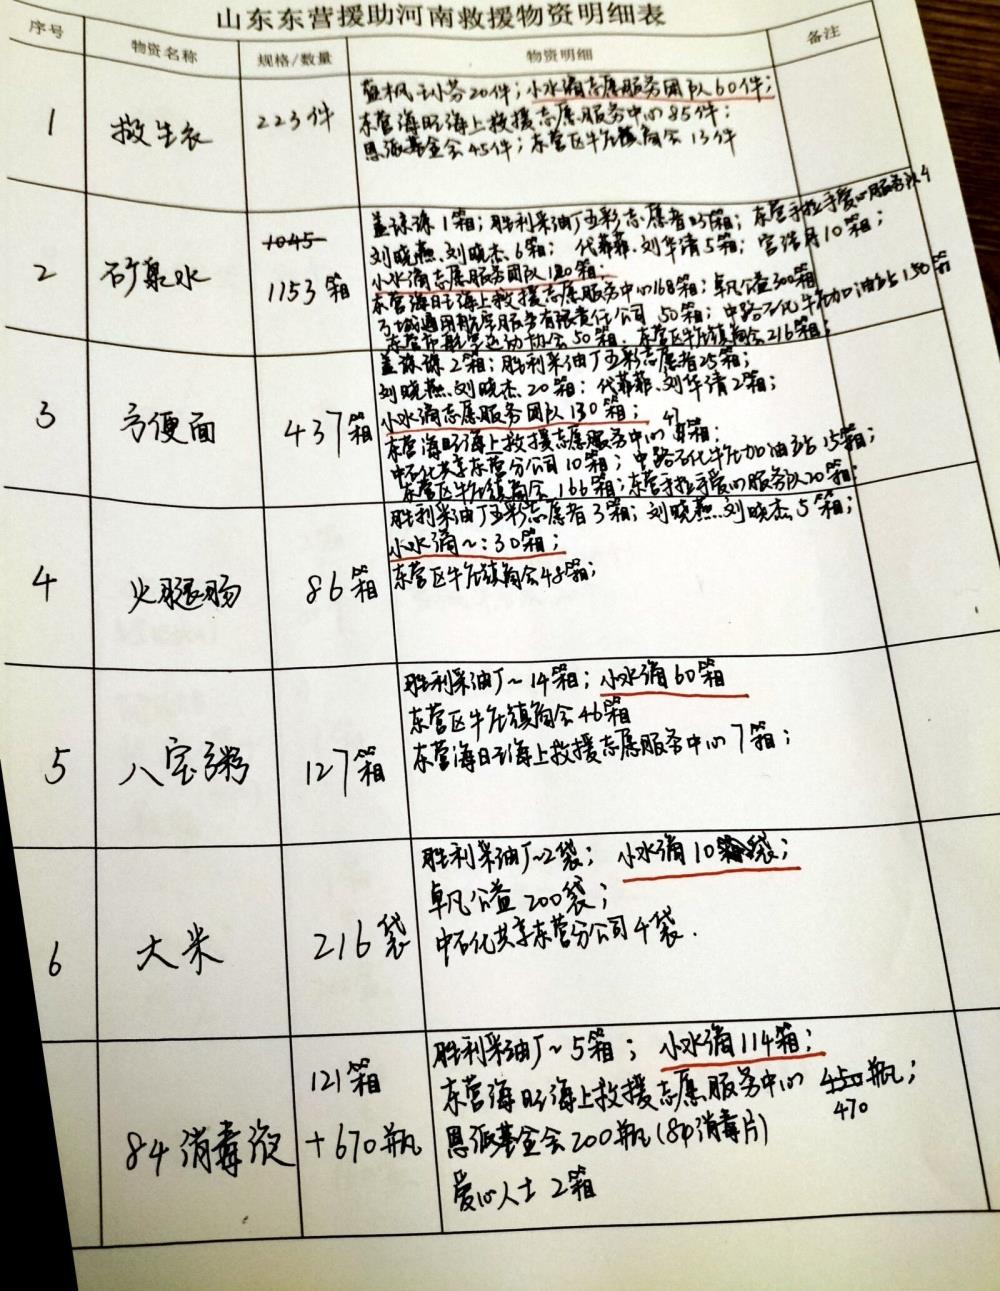 山东东营援助河南救援物资明细表
序号 物资名称 规格/数量 物资明细 备注
1 救生衣 223件
蓝枫王小芬20件；小水滴志愿服务团队60件；
东营海旺海上救援志愿服务中心85件；
恩派基金会45件；东营区牛庄镇商会13件
2 矿泉水 1045 1153箱
盖诔诔1箱；胜利采油厂五彩志愿者25箱；东营手拉手爱心服务队4
刘晓燕、刘晓杰、6箱；代菲菲、刘华清5箱；宫浩月10箱；
小水滴志愿服务团队120箱；
东营海旺海上救援志愿服务中心168箱；卓凡公益300箱
通用航空服务有限责任公司50箱；中路石化牛庄加油站150箱
东营市航空运动协会50箱、东营区牛庄镇商会216箱；
3 方便面 437箱
盖诔诔2箱；胜利采油厂五彩志愿者25箱；
刘晓燕、刘晓杰、20箱；代菲菲、刘华清2箱；
小水滴志愿服务团队130箱；
东营海旺海上救援志愿服务中心47箱；
中石化共享东营分公司10箱；中路石化牛庄加油站15箱；
东营区牛庄镇商会166箱；东营手拉手爱心服务队20箱；
4 火腿肠 86箱
胜利采油厂五彩志愿者3箱；刘晓燕、刘晓杰5箱；
小水滴～：30箱；
东营区牛庄镇商会48箱；
5 八宝粥 127箱
胜利采油厂～14箱；小水滴60箱
东营区牛庄镇商会46箱
东营海旺海上救援志愿服务中心7箱；
6 大米 216袋
胜利采油厂～2袋；小水滴10袋；
卓凡公益200袋；
中石化共享东营分公司4袋.
84消毒液 121箱
+670瓶
胜利采油厂～5箱；小水滴114箱；
东营海旺海上救援志愿服务中心450瓶；
470
恩派基金会200瓶(84消毒片)
爱心人士2箱